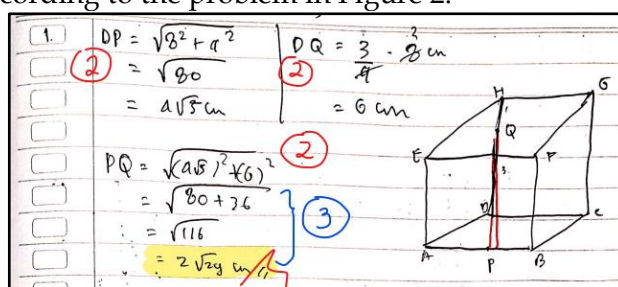 cording to the problem in Figure 2.
1. DP = √8² + 4²
= √80
= 4√5 cm
2
DQ = 3/4 · 8 cm
2
2
= 6 cm
PQ = √(4√5)² + (6)²
2
= √80 + 36
= √116
= 2√29 cm //
3
H G
Q
E F
D C
A P B